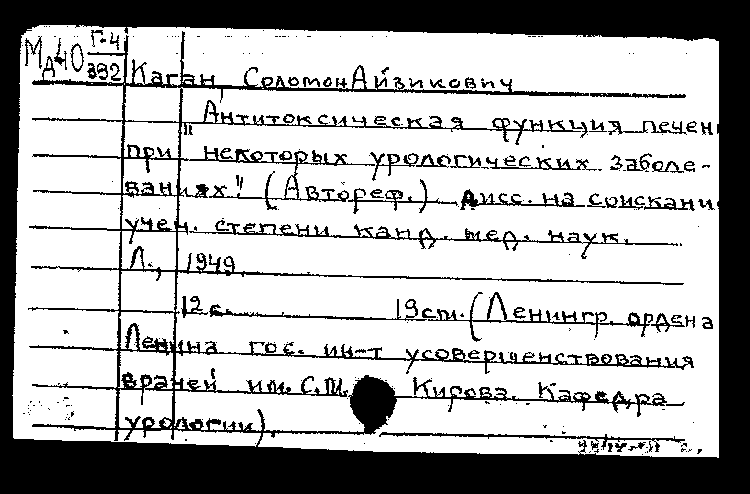 МД40 Г-4
392
Каган, Соломон Айзикович
"Антитоксическая функция печен
при некоторых урологических заболе-
ваниях" (Автореф.) дисс. на соискани
учен. степени канд. мед. наук.
Л., 1949.
12 с. 19 см. (Ленингр. ордена
Ленина гос. ин-т усовершенствования
врачей им. С.М. Кирова. Кафедра
урологии).